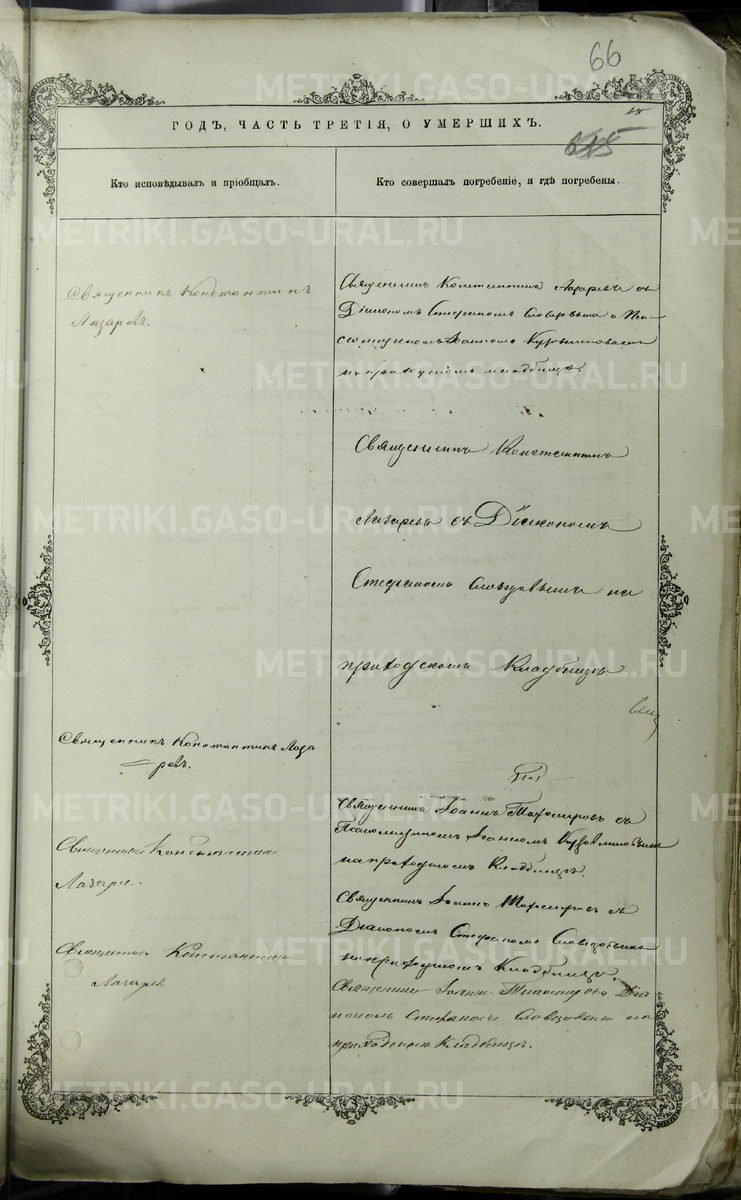 66
ГОДЪ, ЧАСТЬ ТРЕТІЯ, О УМЕРШИХЪ.
645
Кто исповѣдывалъ и пріобщалъ.
Кто совершалъ погребеніе, и гдѣ погребены.
Священникъ Константинъ
Лазаревъ.
Священникъ Константинъ Лазаревъ съ
Діакономъ Стефаномъ Словцовымъ и Пса-
ломщикомъ Іоанномъ
на приходскомъ кладбищѣ.
Священникъ Константинъ
Лазаревъ съ Діакономъ
Стефаномъ Словцовымъ на
приходскомъ кладбищѣ
Священникъ Константинъ Лаза
ревъ.
Священникъ Іоаннъ съ
Псаломщикомъ Іоанномъ
на приходскомъ кладбищѣ.
Священникъ Константинъ
Лазаревъ.
Священникъ Іоаннъ съ
Діакономъ Стефаномъ Словцовымъ
на приходскомъ кладбищѣ.
Священникъ Константинъ
Лазаревъ
Священникъ Іоаннъ Діа
кономъ Стефаномъ Словцовымъ на
приходскомъ кладбищѣ.
METRIKI.GASO-URAL.RU